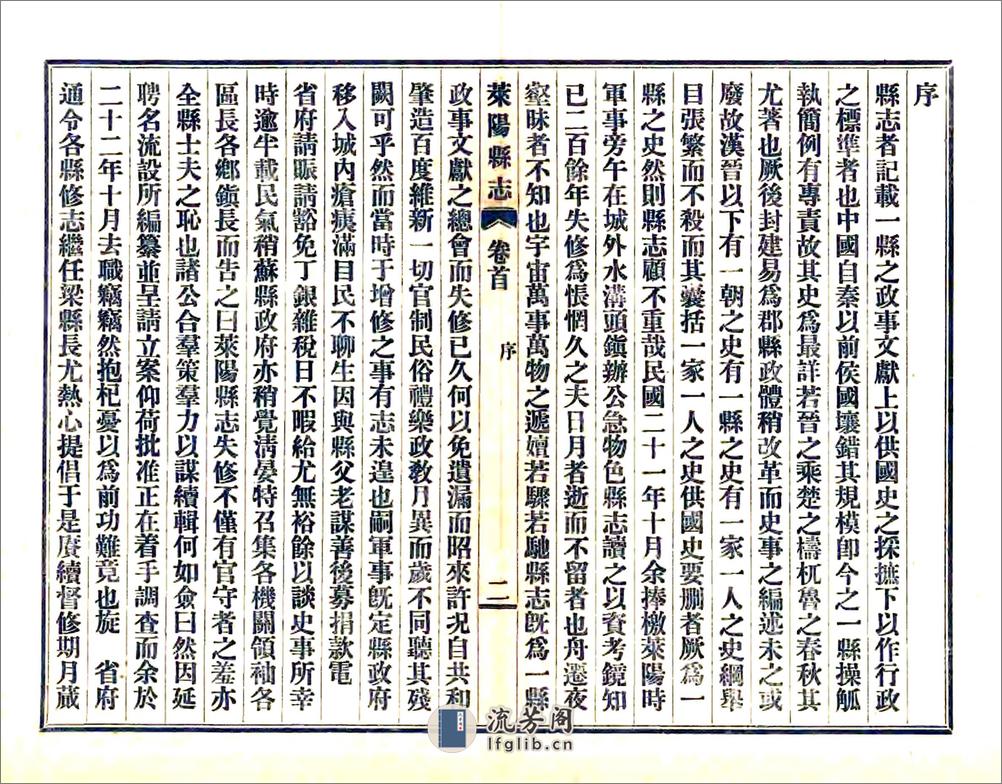 序
縣志者記載一縣之政事文獻上以供國史之採摭下以作行政
之標準者也中國自秦以前侯國壤錯其規模卽今之一縣操觚
執簡例有專責故其史爲最詳若晉之乘楚之檮杌魯之春秋其
尤著也厥後封建易爲郡縣政體稍改革而史事之編述未之或
廢故漢晉以下有一朝之史有一縣之史有一家一人之史綱舉
目張繁而不殺而其囊括一家一人之史供國史要刪者厥爲一
縣之史然則縣志顧不重哉民國二十一年十月余捧檄萊陽時
軍事旁午在城外水溝頭鎭辦公急物色縣志讀之以資考鏡知
已二百餘年失修爲悵惘久之夫日月者逝而不留者也舟遷夜
壑昧者不知也宇宙萬事萬物之遞嬗若驟若馳縣志旣爲一縣
萊陽縣志 卷首 序 二
政事文獻之總會而失修已久何以免遺漏而昭來許況自共和
肇造百度維新一切官制民俗禮樂政敎月異而歲不同聽其殘
闕可乎然而當時于增修之事有志未遑也嗣軍事旣定縣政府
移入城內瘡痍滿目民不聊生因與縣父老謀善後募捐款電
省府請賑請豁免丁銀雜稅日不暇給尤無裕餘以談史事所幸
時逾半載民氣稍蘇縣政府亦稍覺淸晏特召集各機關領袖各
區長各鄕鎭長而告之曰萊陽縣志失修不僅有官守者之羞亦
全縣士夫之恥也諸公合羣策羣力以謀續輯何如僉曰然因延
聘名流設所編纂並呈請立案仰荷批准正在着手調查而余於
二十二年十月去職竊竊然抱杞憂以爲前功難竟也旋 省府
通令各縣修志繼任梁縣長尤熱心提倡于是賡續督修期月蕆
流芳阁
lfglib.cn